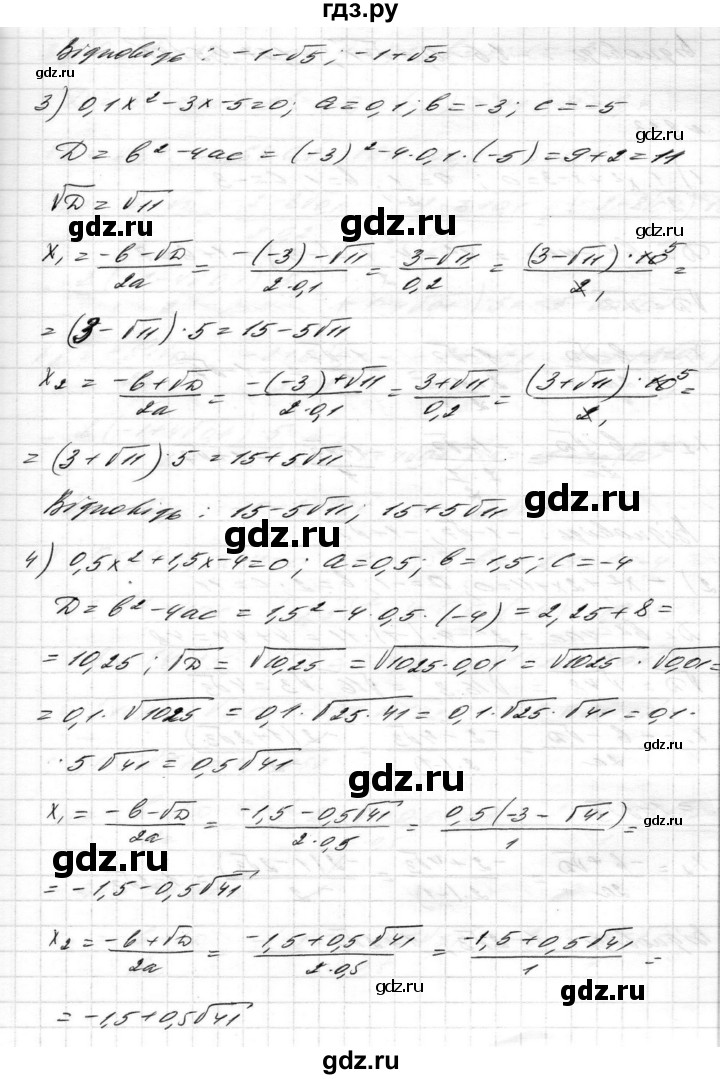 гдз.ру
Відповідь: -1-√5; -1+√5
gdz.ru
3) 0,1x² - 3x - 5 = 0; a = 0,1; b = -3; c = -5
gdz.ru
D = b² - 4ac = (-3)² - 4·0,1·(-5) = 9 + 2 = 11
√D = √11
gdz.ru
gdz.ru
x₁ = (-b-√D)/(2a) = (-(-3)-√11)/(2·0,1) = (3-√11)/0,2 = ((3-√11)·10⁵)/2₁ =
gdz.ru
= (3-√11)·5 = 15-5√11
gdz.ru
x₂ = (-b+√D)/(2a) = (-(-3)+√11)/(2·0,1) = (3+√11)/0,2 = ((3+√11)·10⁵)/2₁ =
gdz.ru
= (3+√11)·5 = 15+5√11
Відповідь: 15-5√11; 15+5√11
gdz.ru
gdz.ru
4) 0,5x² + 1,5x - 4 = 0; a = 0,5; b = 1,5; c = -4
D = b² - 4ac = 1,5² - 4·0,5·(-4) = 2,25 + 8 =
= 10,25; √D = √10,25 = √1025·0,01 = √1025 · √0,01 =
= 0,1·√1025 = 0,1·√25·41 = 0,1·√25·√41 = 0,1·
gdz.ru
·5√41 = 0,5√41
gdz.ru
x₁ = (-b-√D)/(2a) = (-1,5-0,5√41)/(2·0,5) = (0,5(-3-√41))/1 =
gdz.ru
gdz.ru
= -1,5-0,5√41
x₂ = (-b+√D)/(2a) = (-1,5+0,5√41)/(2·0,5) = (-1,5+0,5√41)/1 =
gdz.ru
gdz.ru
= -1,5+0,5√41
gdz.ru